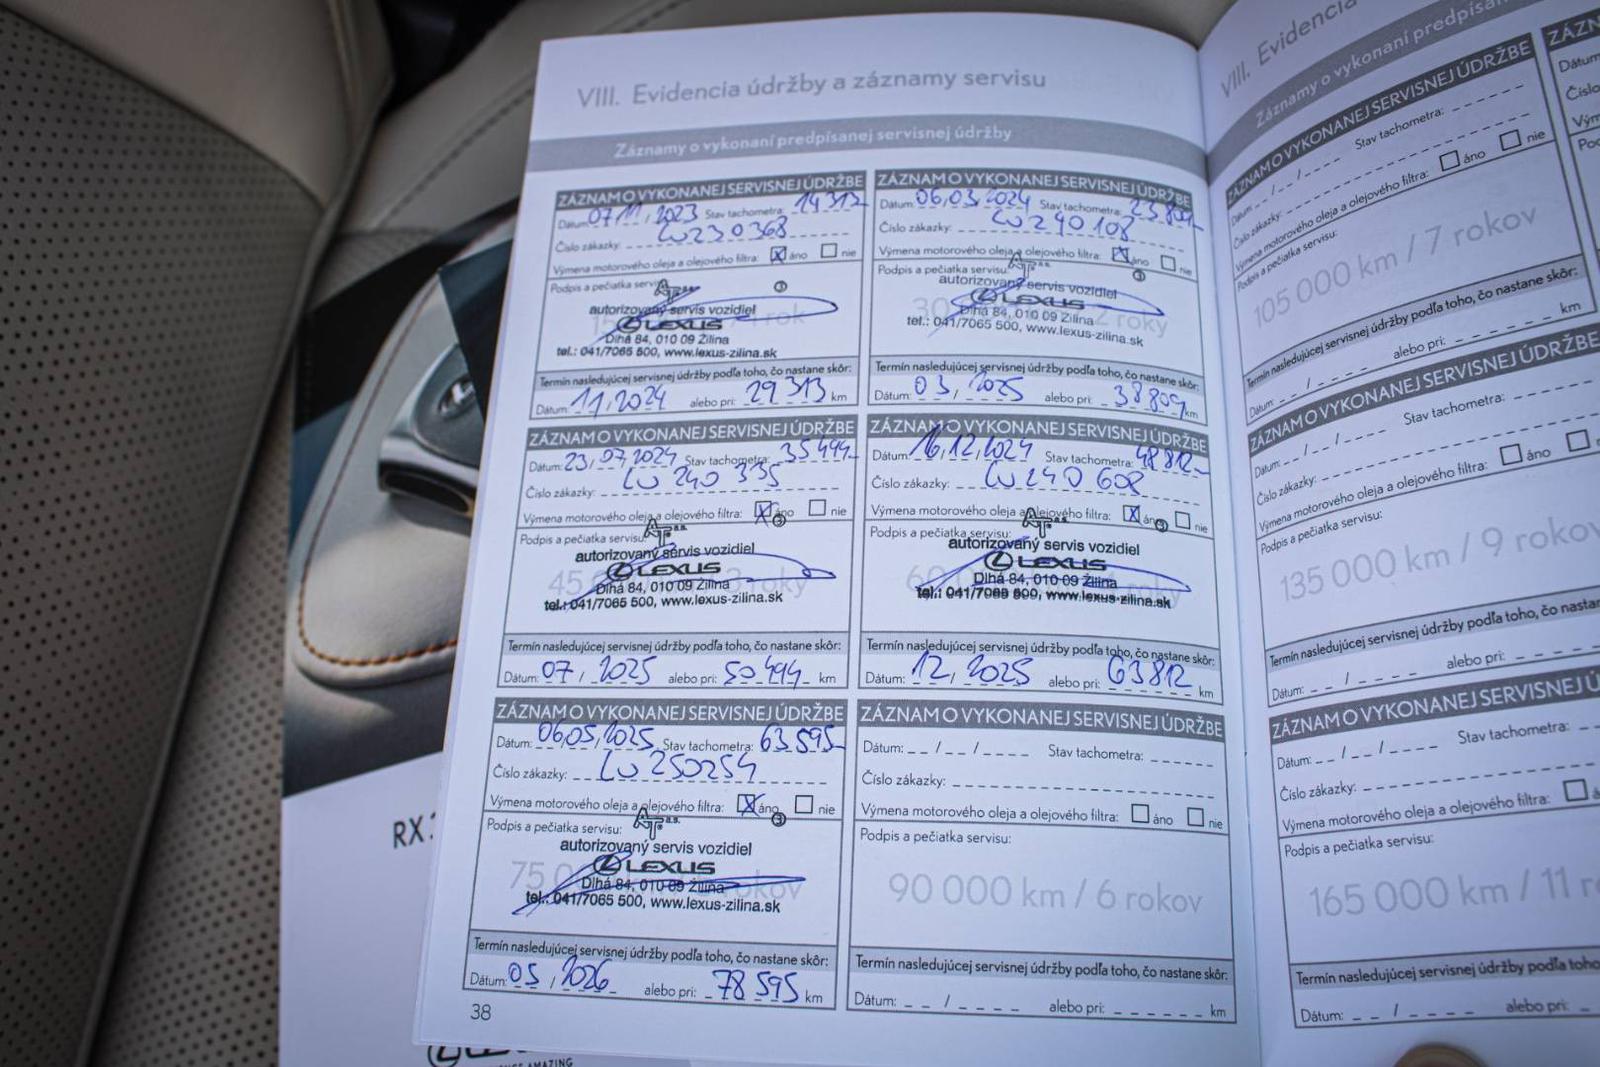 VIII. Evidencia údržby a záznamy servisu
Záznamy o vykonaní predpísanej servisnej údržby
ZÁZNAM O VYKONANEJ SERVISNEJ ÚDRŽBE
Dátum: 07.11.2023 Stav tachometra: 14 313
Číslo zákazky: LU230368
Výmena motorového oleja a olejového filtra: X áno nie
Podpis a pečiatka servisu: AT
autorizovaný servis vozidiel
LEXUS
Dlhá 84, 010 09 Žilina
tel.: 041/7065 500, www.lexus-zilina.sk
Termín nasledujúcej servisnej údržby podľa toho, čo nastane skôr:
Dátum: 11/2024 alebo pri: 29 313 km
ZÁZNAM O VYKONANEJ SERVISNEJ ÚDRŽBE
Dátum: 06.03.2024 Stav tachometra: 23 809
Číslo zákazky: LU240108
Výmena motorového oleja a olejového filtra: X áno nie
Podpis a pečiatka servisu: AT
autorizovaný servis vozidiel
LEXUS
Dlhá 84, 010 09 Žilina
tel.: 041/7065 500, www.lexus-zilina.sk
Termín nasledujúcej servisnej údržby podľa toho, čo nastane skôr:
Dátum: 03/2025 alebo pri: 38 809 km
ZÁZNAM O VYKONANEJ SERVISNEJ ÚDRŽBE
Dátum: 23.07.2024 Stav tachometra: 35 494
Číslo zákazky: LU240335
Výmena motorového oleja a olejového filtra: X áno nie
Podpis a pečiatka servisu: AT
autorizovaný servis vozidiel
LEXUS
Dlhá 84, 010 09 Žilina
tel.: 041/7065 500, www.lexus-zilina.sk
Termín nasledujúcej servisnej údržby podľa toho, čo nastane skôr:
Dátum: 07/2025 alebo pri: 50 494 km
ZÁZNAM O VYKONANEJ SERVISNEJ ÚDRŽBE
Dátum: 16.12.2024 Stav tachometra: 48 812
Číslo zákazky: LU240608
Výmena motorového oleja a olejového filtra: X áno nie
Podpis a pečiatka servisu: AT
autorizovaný servis vozidiel
LEXUS
Dlhá 84, 010 09 Žilina
tel.: 041/7065 500, www.lexus-zilina.sk
Termín nasledujúcej servisnej údržby podľa toho, čo nastane skôr:
Dátum: 12/2025 alebo pri: 63 812 km
ZÁZNAM O VYKONANEJ SERVISNEJ ÚDRŽBE
Dátum: 06.05.2025 Stav tachometra: 63 595
Číslo zákazky: LU250254
Výmena motorového oleja a olejového filtra: X áno nie
Podpis a pečiatka servisu: AT a.s.
autorizovaný servis vozidiel
LEXUS
Dlhá 84, 010 09 Žilina
tel.: 041/7065 500, www.lexus-zilina.sk
Termín nasledujúcej servisnej údržby podľa toho, čo nastane skôr:
Dátum: 05/2026 alebo pri: 78 595 km
ZÁZNAM O VYKONANEJ SERVISNEJ ÚDRŽBE
Dátum: Stav tachometra:
Číslo zákazky:
Výmena motorového oleja a olejového filtra: áno nie
Podpis a pečiatka servisu:
90 000 km / 6 rokov
Termín nasledujúcej servisnej údržby podľa toho, čo nastane skôr:
Dátum: alebo pri: km
38
VIII. Evidencia
Záznamy o vykonaní
ZÁZNAM O VYKONANEJ SERVISNEJ ÚDRŽBE
Dátum: Stav tachometra:
Číslo zákazky:
Výmena motorového oleja a olejového filtra: áno nie
Podpis a pečiatka servisu:
105 000 km / 7 rokov
Termín nasledujúcej servisnej údržby podľa toho, čo nastane skôr:
Dátum: alebo pri: km
ZÁZNAM O VYKONANEJ SERVISNEJ ÚDRŽBE
Dátum: Stav tachometra:
Číslo zákazky:
Výmena motorového oleja a olejového filtra: áno
Podpis a pečiatka servisu:
135 000 km / 9 rokov
Termín nasledujúcej servisnej údržby podľa toho, čo
Dátum: alebo pri:
ZÁZNAM O VYKONANEJ SERVISNEJ
Dátum: Stav tachometra:
Číslo zákazky:
Výmena motorového oleja a olejového filtra:
Podpis a pečiatka servisu:
165 000 km / 11
Termín nasledujúcej servisnej údržby podľa toho
Dátum: alebo pri:
Dátum
Číslo
RX
LEXUS
AMAZING